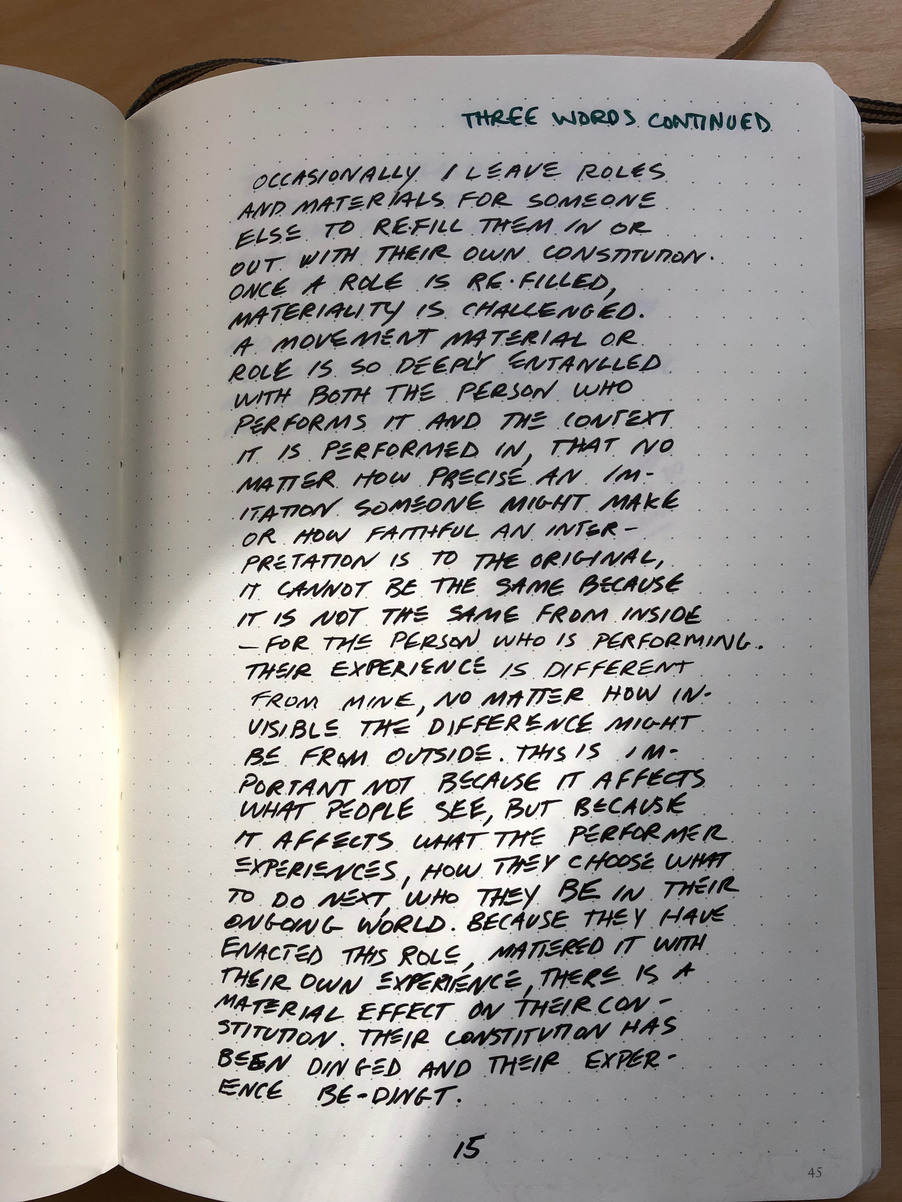 THREE WORDS CONTINUED
OCCASIONALLY I LEAVE ROLES
AND MATERIALS FOR SOMEONE
ELSE TO RE·FILL THEM IN OR
OUT WITH THEIR OWN CONSTITUTION.
ONCE A ROLE IS RE·FILLED,
MATERIALITY IS CHALLENGED.
A MOVEMENT MATERIAL OR
ROLE IS SO DEEPLY ENTANGLED
WITH BOTH THE PERSON WHO
PERFORMS IT AND THE CONTEXT
IT IS PERFORMED IN, THAT NO
MATTER HOW PRECISE AN IM-
ITATION SOMEONE MIGHT MAKE
OR HOW FAITHFUL AN INTER-
PRETATION IS TO THE ORIGINAL,
IT CANNOT BE THE SAME BECAUSE
IT IS NOT THE SAME FROM INSIDE
– FOR THE PERSON WHO IS PERFORMING.
THEIR EXPERIENCE IS DIFFERENT
FROM MINE, NO MATTER HOW IN-
VISIBLE THE DIFFERENCE MIGHT
BE FROM OUTSIDE. THIS IS IM-
PORTANT NOT BECAUSE IT AFFECTS
WHAT PEOPLE SEE, BUT BECAUSE
IT AFFECTS WHAT THE PERFORMER
EXPERIENCES, HOW THEY CHOOSE WHAT
TO DO NEXT, WHO THEY BE IN THEIR
ONGOING WORLD. BECAUSE THEY HAVE
ENACTED THIS ROLE, MATTERED IT WITH
THEIR OWN EXPERIENCE, THERE IS A
MATERIAL EFFECT ON THEIR CON-
STITUTION. THEIR CONSTITUTION HAS
BEEN DINGED AND THEIR EXPER-
ENCE BE-DINGT.
15
45